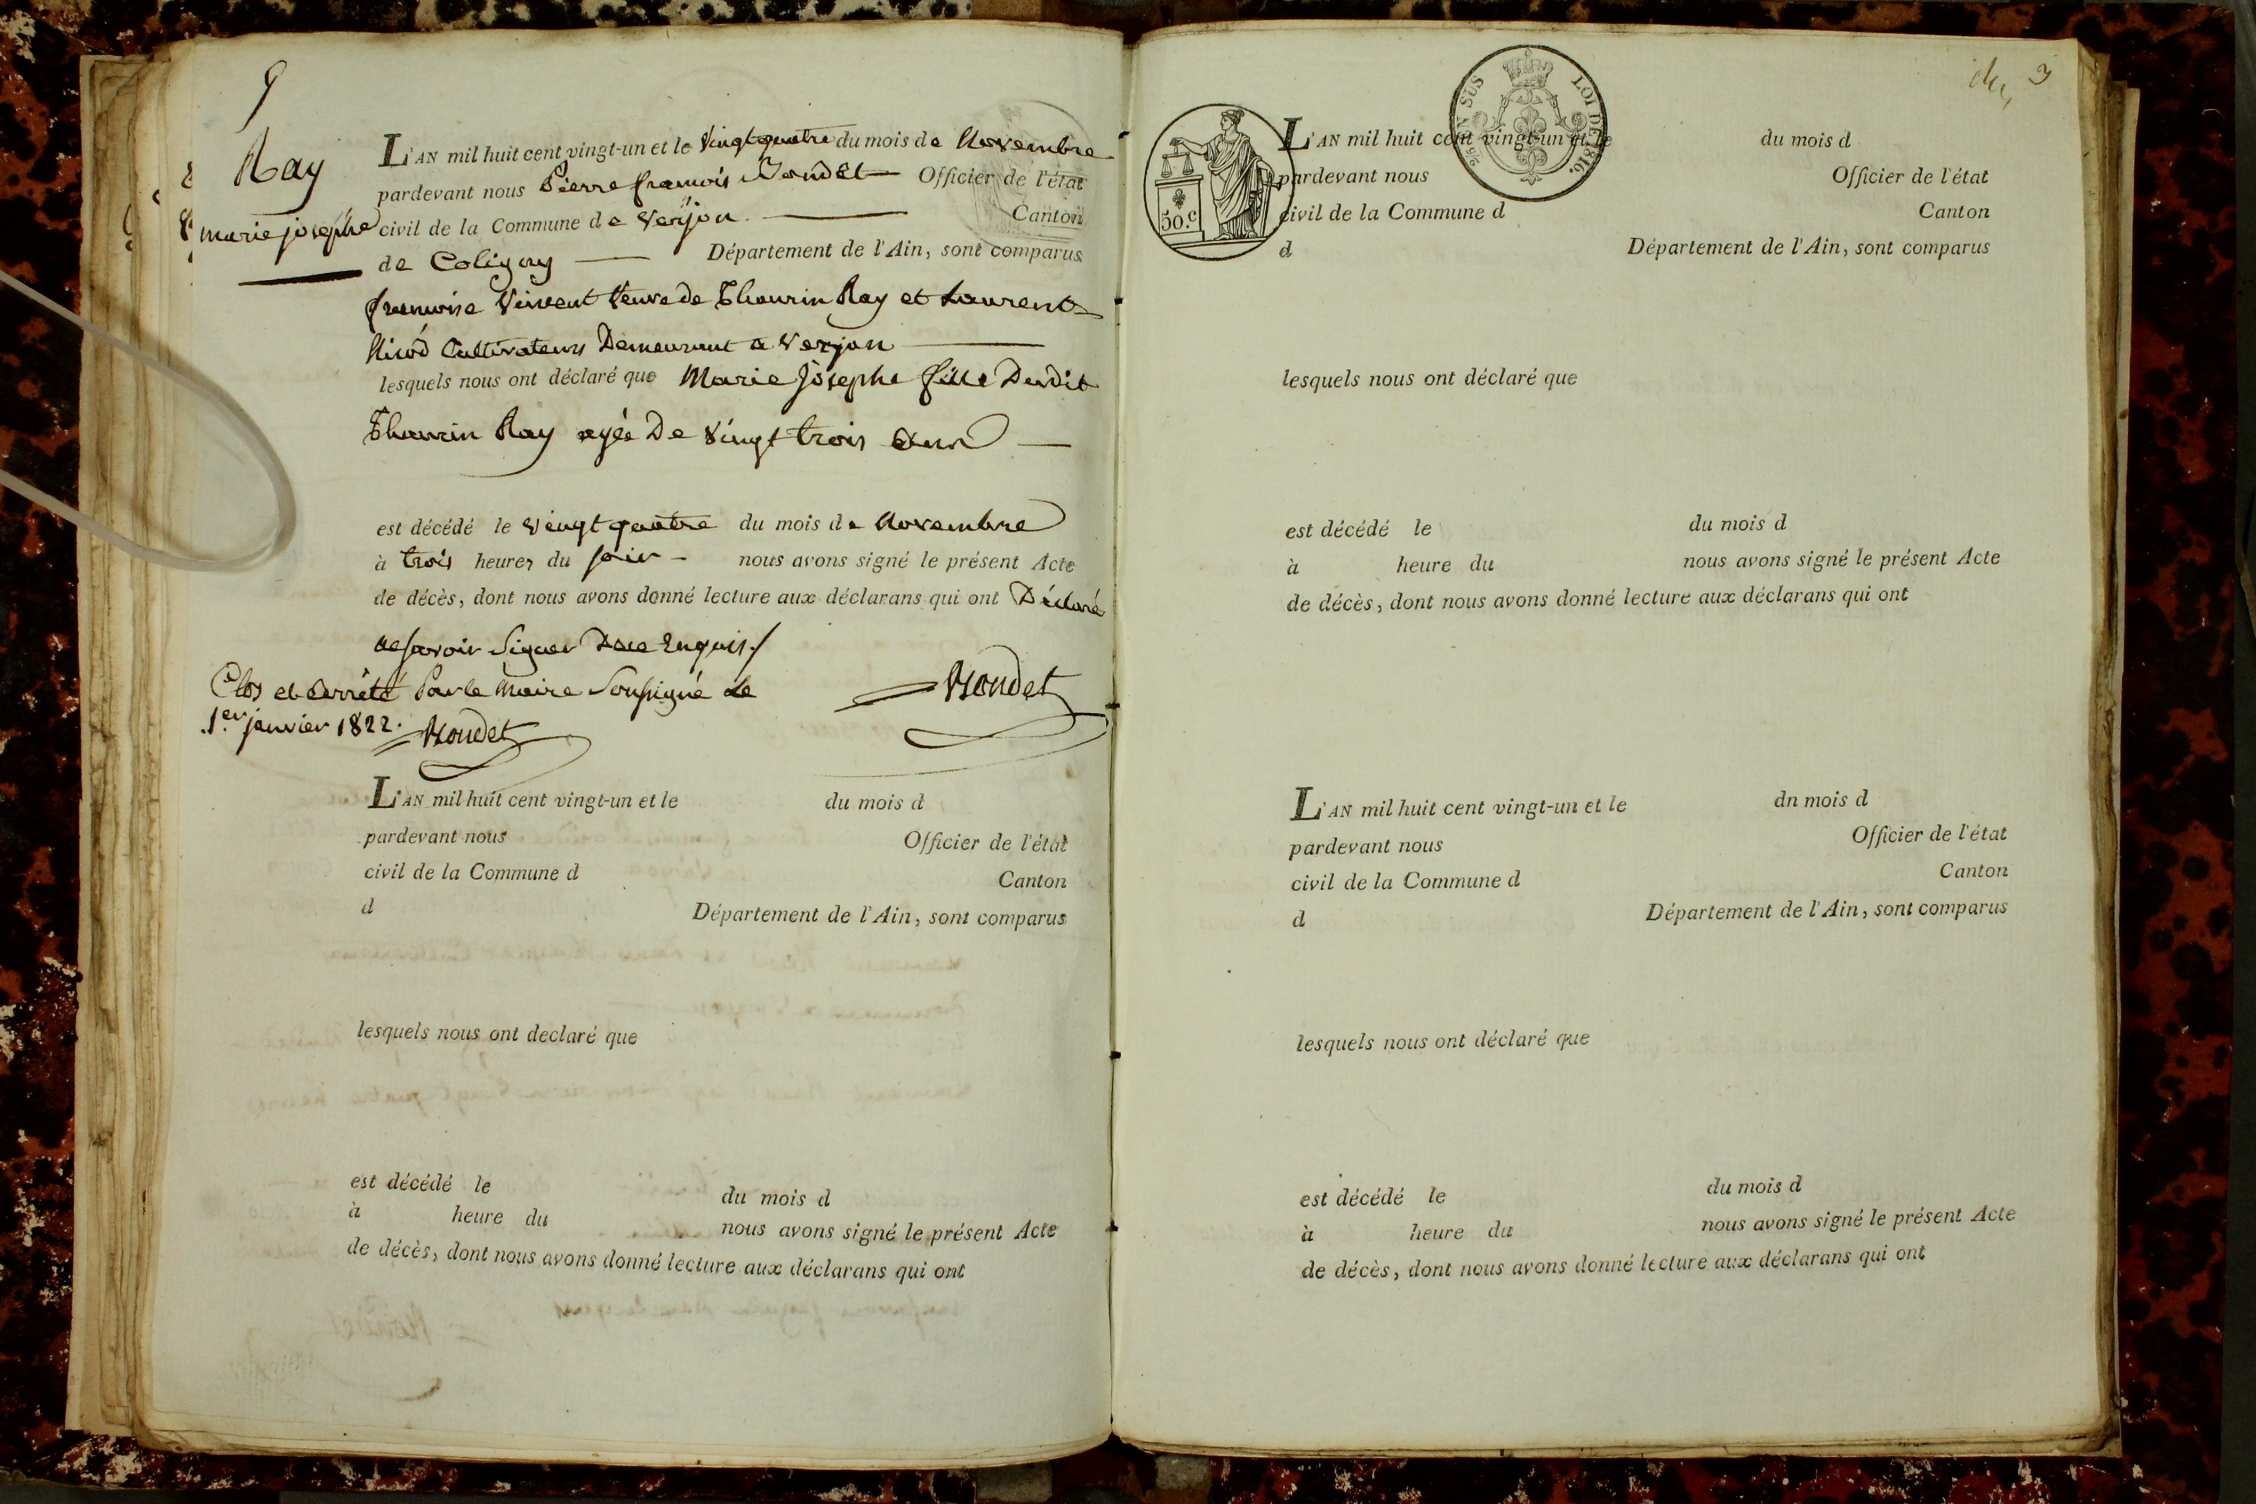 9
Ray
marie josephe
L'AN mil huit cent vingt-un et le Vingt quatre du mois de Novembre
pardevant nous Pierre francois Nondet Officier de l'état
civil de la Commune de Verjon Canton
de Coligny Département de l'Ain, sont comparus
francoise Vincent Veuve de Thaurin Ray et Laurent
Nicod Cultivateurs Demeurant a Verjon
lesquels nous ont déclaré que Marie Josephe fille Dudit
Thaurin Ray agée De Vingt trois ans
est décédé le vingt quatre du mois de Novembre
à trois heures du soir nous avons signé le présent Acte
de décès, dont nous avons donné lecture aux déclarans qui ont Déclaré
ne savoir Signer De ce Enquis
Nondet
Clos et Arrêté Par le Maire Soussigné Le
1er janvier 1822. Nondet
L'AN mil huit cent vingt-un et le du mois d
pardevant nous Officier de l'état
civil de la Commune d Canton
d Département de l'Ain, sont comparus
lesquels nous ont declaré que
est décédé le du mois d
à heure du nous avons signé le présent Acte
de décès, dont nous avons donné lecture aux déclarans qui ont
3
50.c
EN SUS LOI DE 1816.
L'AN mil huit cent vingt-un et le du mois d
pardevant nous Officier de l'état
civil de la Commune d Canton
d Département de l'Ain, sont comparus
lesquels nous ont déclaré que
est décédé le du mois d
à heure du nous avons signé le présent Acte
de décès, dont nous avons donné lecture aux déclarans qui ont
L'AN mil huit cent vingt-un et le dn mois d
pardevant nous Officier de l'état
civil de la Commune d Canton
d Département de l'Ain, sont comparus
lesquels nous ont déclaré que
est décédé le du mois d
à heure du nous avons signé le présent Acte
de décès, dont nous avons donné lecture aux déclarans qui ont